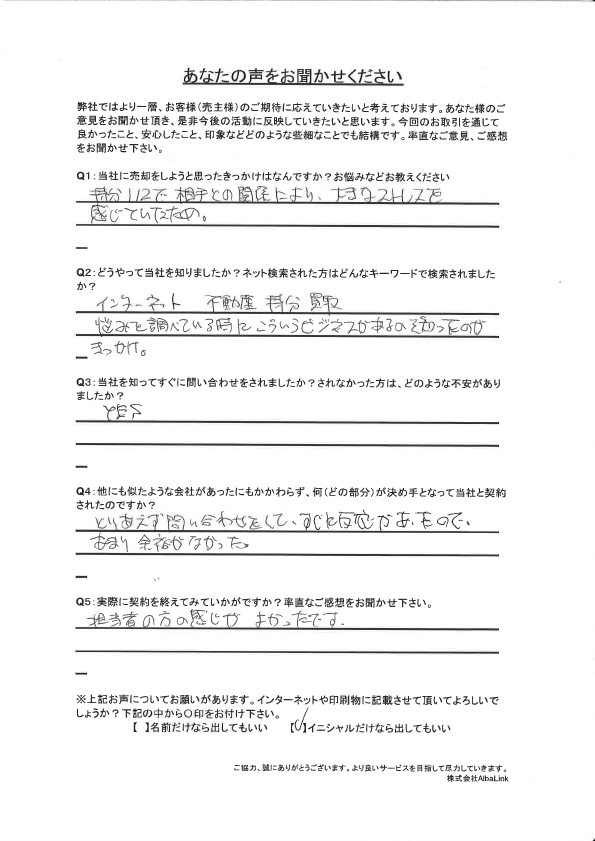 あなたの声をお聞かせください
弊社ではより一層、お客様(売主様)のご期待に応えていきたいと考えております。あなた様のご
意見をお聞かせ頂き、是非今後の活動に反映していきたいと思います。今回のお取引を通じて
良かったこと、安心したこと、印象などどのような些細なことでも結構です。率直なご意見、ご感想
をお聞かせ下さい。
Q1：当社に売却をしようと思ったきっかけはなんですか？お悩みなどお教えください
持分1/2で相手との関係により、大きなストレスを
感じていたため。
Q2：どうやって当社を知りましたか？ネット検索された方はどんなキーワードで検索されました
か？
インターネット 不動産 持分 買取
悩みを調べている時にこういうビジネスがあるのを知ったのが
きっかけ。
Q3：当社を知ってすぐに問い合わせをされましたか？されなかった方は、どのような不安があり
ましたか？
YES
Q4：他にも似たような会社があったにもかかわらず、何(どの部分)が決め手となって当社と契約
されたのですか？
とりあえず問い合わせをして、すぐに反応があったので、
あまり余裕がなかった。
Q5：実際に契約を終えてみていかがですか？率直なご感想をお聞かせ下さい。
担当者の方の感じがよかったです。
※上記お声についてお願いがあります。インターネットや印刷物に記載させて頂いてよろしいで
しょうか？下記の中から〇印をお付け下さい。
【 】名前だけなら出してもいい 【 】イニシャルだけなら出してもいい
ご協力、誠にありがとうございます。より良いサービスを目指して尽力していきます。
株式会社AlbaLink